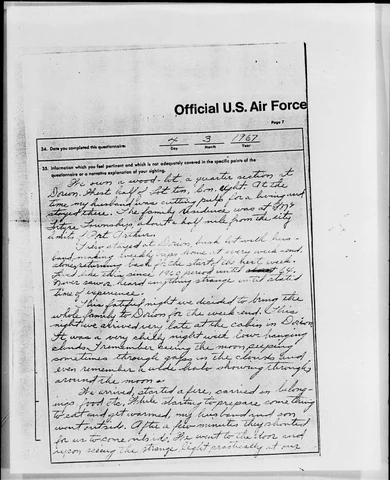 Official U.S. Air Force
Page 7
34. Date you completed this questionnaire:
4 3 1967
Day Month Year
35. Information which you feel pertinent and which is not adequately covered in the specific points of the
questionnaire or a narrative explanation of your sighting.
We own a wood-lot, a quarter section at
Dorion. West half of Lot ten, Con. eight. At the
time my husband was cutting pulp for a living and
stayed there. The family residence was at
Township, about a half mile from the city
limits Port Arthur.
I even stayed at Dorion bush lot with hus-
band, making weekly trips home every week-end,
alone, returning back at the start of the next week.
Lived like this since 1960 period until 64.
Never saw or heard anything strange until stated
time of experience.
This fateful night we decided to bring the
whole family to Dorion for the week-end. This
night we arrived very late at the cabin in Dorion.
It was a very chilly night with low hanging
clouds. I remember seeing the moon peeping
sometimes through gaps in the clouds and
even remember a whole halo showing through
around the moon.
We arrived, started a fire, carried in belong-
ings, food, etc. While starting to prepare something
to eat and get warmed, my husband and son
went outside. After a few minutes they shouted
for us to come outside. We went to the door and
upon seeing the strange light practically at our